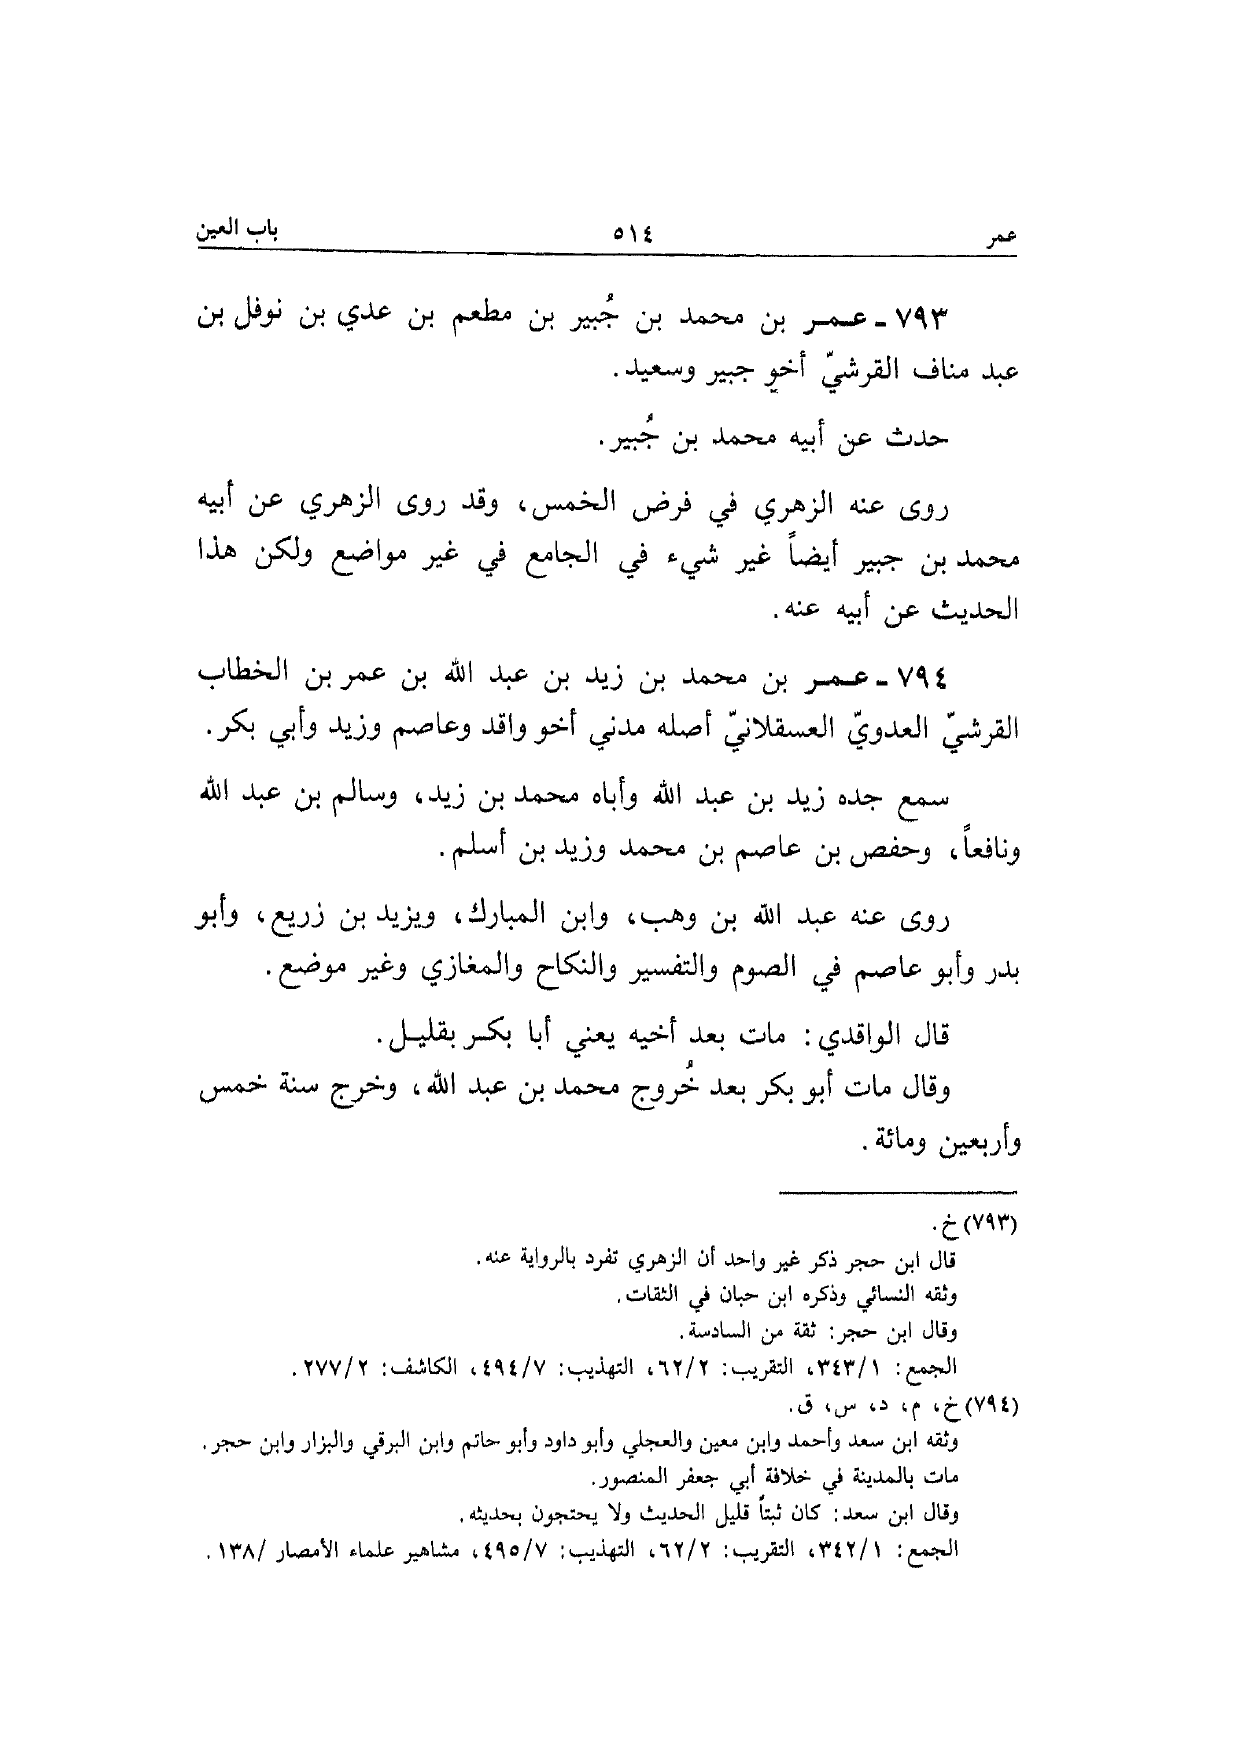 عمر ٥١٤ باب العين
٧٩٣ ـ عمـر بن محمد بن جُبير بن مطعم بن عدي بن نوفل بن
عبد مناف القرشيّ أخو جبير وسعيد.
حدث عن أبيه محمد بن جُبير.
روى عنه الزهري في فرض الخمس، وقد روى الزهري عن أبيه
محمد بن جبير أيضاً غير شيء في الجامع في غير مواضع ولكن هذا
الحديث عن أبيه عنه.
٧٩٤ ـ عمـر بن محمد بن زيد بن عبد الله بن عمر بن الخطاب
القرشيّ العدويّ العسقلانيّ أصله مدني أخو واقد وعاصم وزيد وأبي بكر.
سمع جده زيد بن عبد الله وأباه محمد بن زيد، وسالم بن عبد الله
ونافعاً، وحفص بن عاصم بن محمد وزيد بن أسلم.
روى عنه عبد الله بن وهب، وابن المبارك، ويزيد بن زريع، وأبو
بدر وأبو عاصم في الصوم والتفسير والنكاح والمغازي وغير موضع.
قال الواقدي: مات بعد أخيه يعني أبا بكـر بقليـل.
وقال مات أبو بكر بعد خُروج محمد بن عبد الله، وخرج سنة خمس
وأربعين ومائة.
(٧٩٣) خ.
قال ابن حجر ذكر غير واحد أن الزهري تفرد بالرواية عنه.
وثقه النسائي وذكره ابن حبان في الثقات.
وقال ابن حجر: ثقة من السادسة.
الجمع: ٣٤٣/١، التقريب: ٦٢/٢، التهذيب: ٤٩٤/٧، الكاشف: ٢٧٧/٢.
(٧٩٤) خ، م، د، س، ق.
وثقه ابن سعد وأحمد وابن معين والعجلي وأبو داود وأبو حاتم وابن البرقي والبزار وابن حجر.
مات بالمدينة في خلافة أبي جعفر المنصور.
وقال ابن سعد: كان ثبتاً قليل الحديث ولا يحتجون بحديثه.
الجمع: ٣٤٢/١، التقريب: ٦٢/٢، التهذيب: ٤٩٥/٧، مشاهير علماء الأمصار /١٣٨.